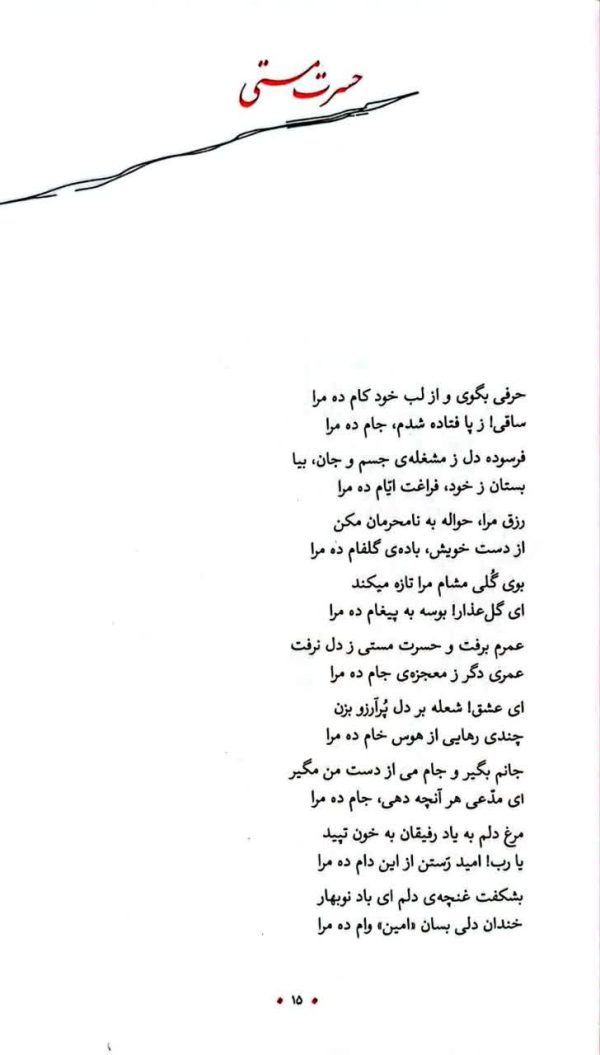 حسرت مستی
حرفی بگوی و از لب خود کام ده مرا
ساقی! ز پا فتاده شدم، جام ده مرا
فرسوده دل ز مشغله‌ی جسم و جان، بیا
بستان ز خود، فراغت ایّام ده مرا
رزق مرا، حواله به نامحرمان مکن
از دست خویش، باده‌ی گلفام ده مرا
بوی گُلی مشام مرا تازه میکند
ای گل‌عذار! بوسه به پیغام ده مرا
عمرم برفت و حسرت مستی ز دل نرفت
عمری دگر ز معجزه‌ی جام ده مرا
ای عشق! شعله بر دل پُرآرزو بزن
چندی رهایی از هوس خام ده مرا
جانم بگیر و جام می از دست من مگیر
ای مدّعی هر آنچه دهی، جام ده مرا
مرغ دلم به یاد رفیقان به خون تپید
یا رب! امید رَستن از این دام ده مرا
بشکفت غنچه‌ی دلم ای باد نوبهار
خندان دلی بسان «امین» وام ده مرا
• ۱۵ •